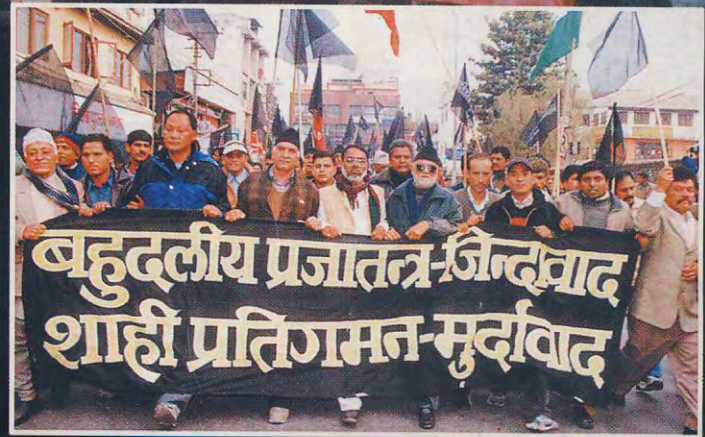 बहुदलीय प्रजातन्त्र-जिन्दावाद
शाही प्रतिगमन-मुर्दावाद